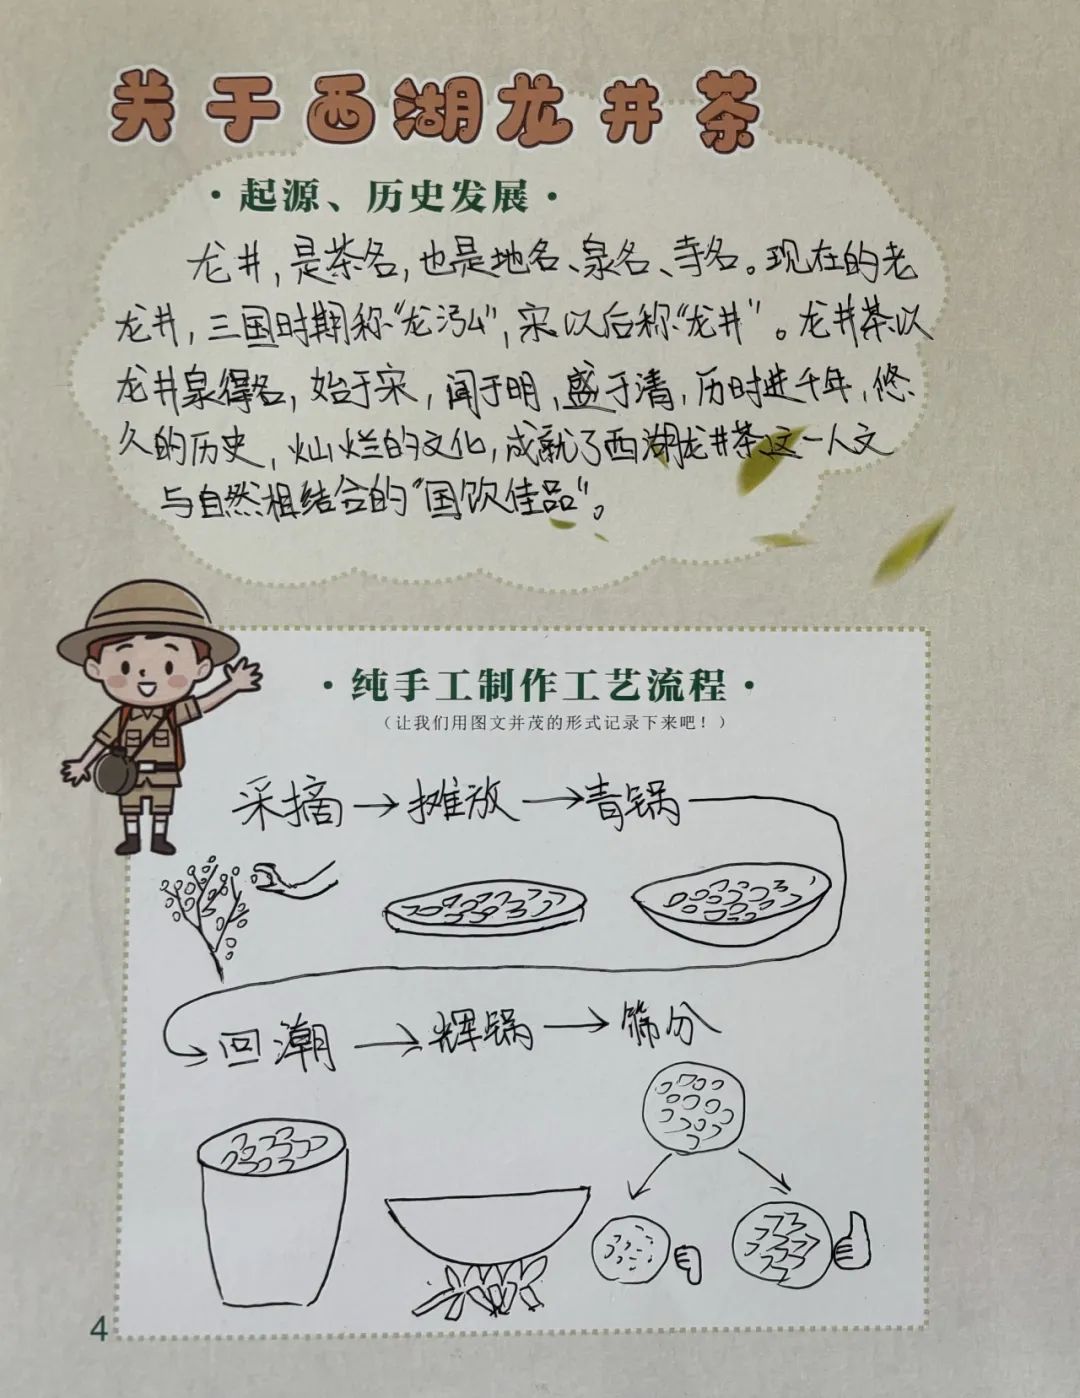 关于西湖龙井茶
·起源、历史发展·
龙井，是茶名，也是地名、泉名、寺名。现在的老
龙井，三国时期称“龙泓”，宋以后称“龙井”。龙井茶以
龙井泉得名，始于宋，闻于明，盛于清，历时进千年，悠
久的历史，灿烂的文化，成就了西湖龙井茶这一人文
与自然相结合的“国饮佳品”。
·纯手工制作工艺流程·
（让我们用图文并茂的形式记录下来吧！）
采摘→摊放→青锅
回潮→辉锅→筛分
4